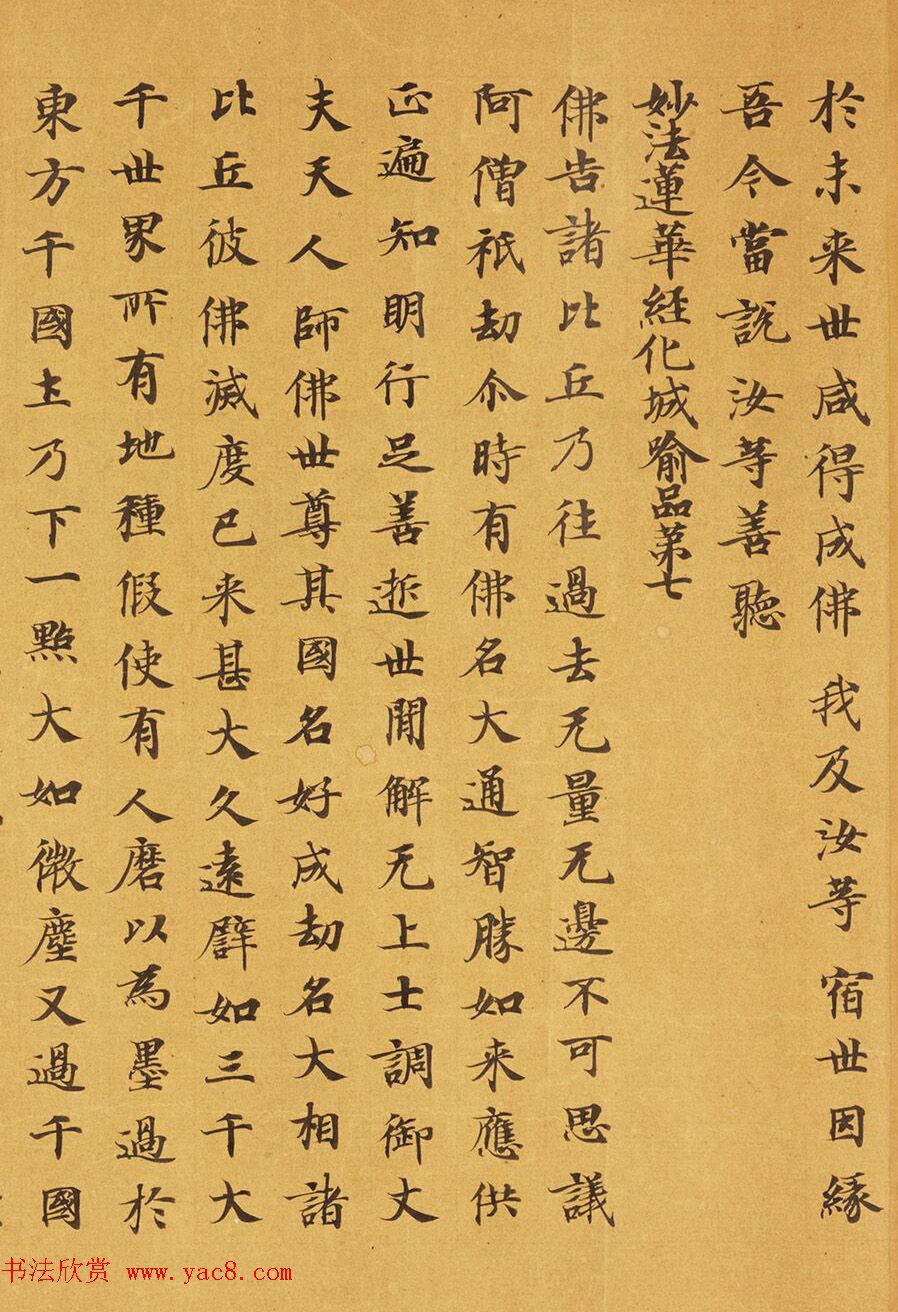 於未来世咸得成佛 我及汝等 宿世因緣
吾今當説汝等善聽
妙法蓮華經化城喻品第七
佛告諸比丘乃往過去无量无邊不可思議
阿僧祇劫尒時有佛名大通智勝如来應供
正遍知明行足善逝世間解无上士調御丈
夫天人師佛世尊其國名好成劫名大相諸
比丘彼佛滅度已来甚大久遠譬如三千大
千世界所有地種假使有人磨以為墨過於
東方千國土乃下一點大如微塵又過千國
书法欣赏 www.yac8.com